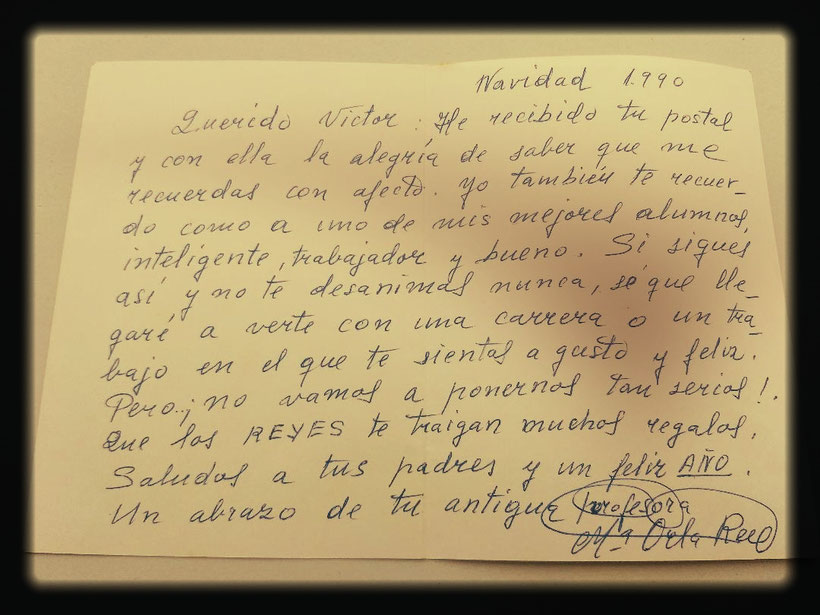 Navidad 1.990
Querido Victor: He recibido tu postal
y con ella la alegría de saber que me
recuerdas con afecto. Yo también te recuer-
do como a uno de mis mejores alumnos,
inteligente, trabajador y bueno. Si sigues
así y no te desanimas nunca, sé que lle-
garé a verte con una carrera o un tra-
bajo en el que te sientas a gusto y feliz.
Pero ¡no vamos a ponernos tan serios!.
Que los REYES te traigan muchos regalos.
Saludos a tus padres y un feliz AÑO.
Un abrazo de tu antigua profesora
Mª